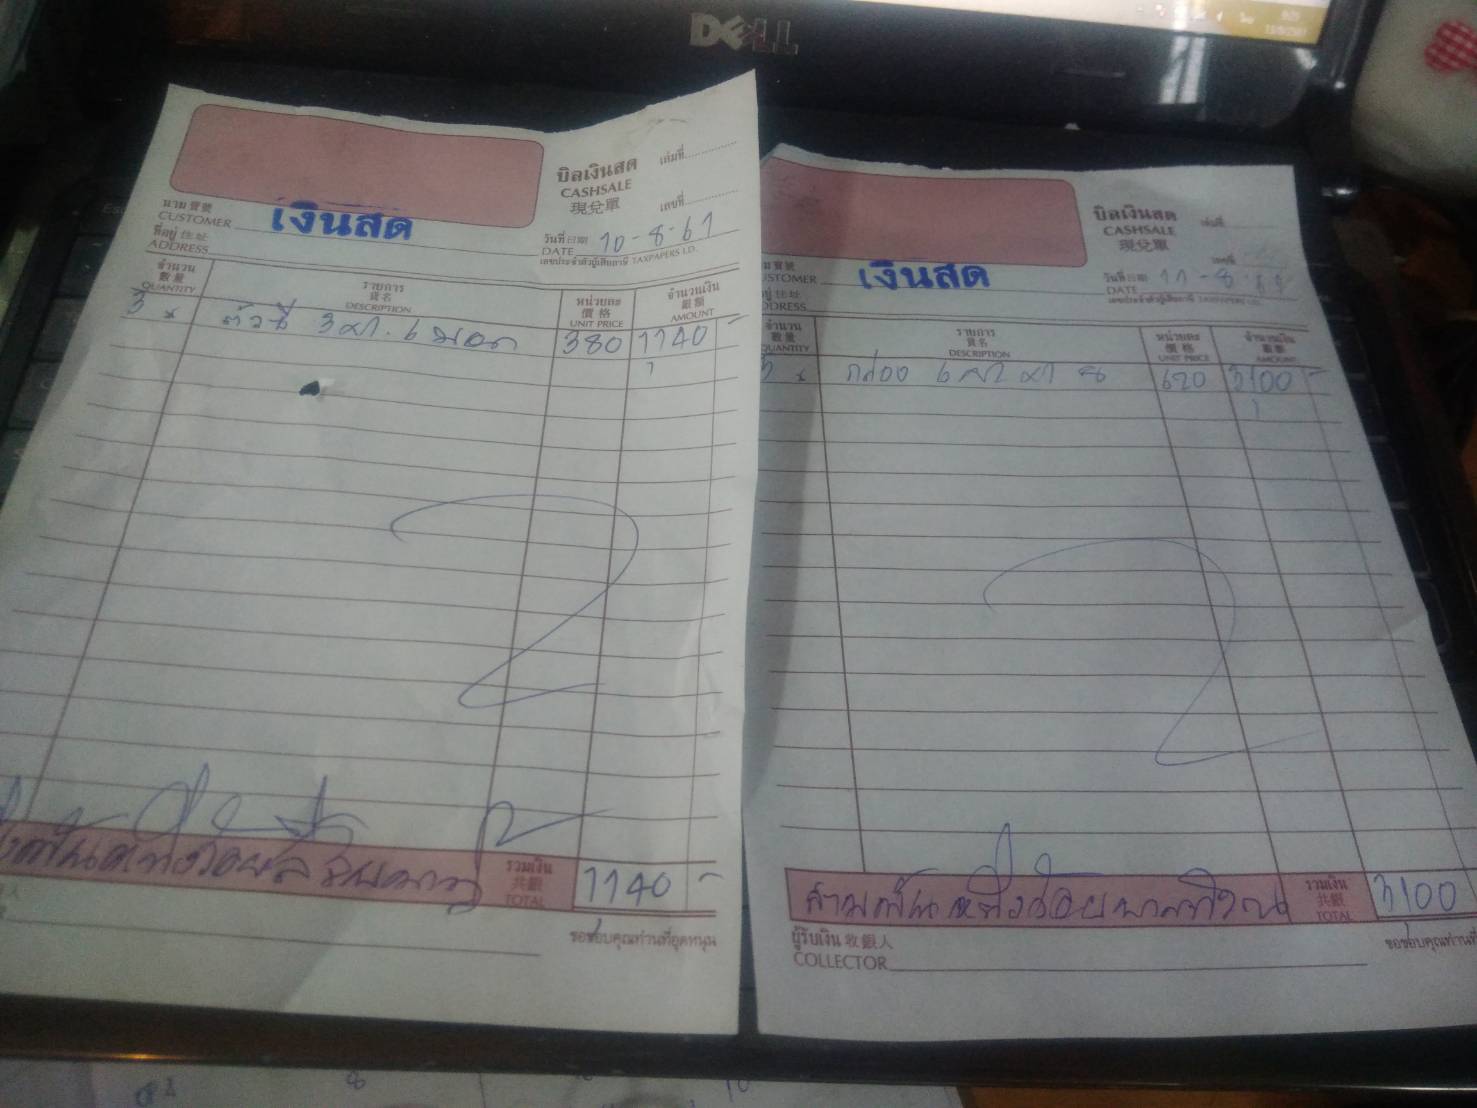 DELL
บิลเงินสด
CASHSALE
現兌單
เล่มที่
เลขที่
นาม寶號
CUSTOMER
เงินสด
ที่อยู่ 住址
ADDRESS
วันที่ 日期
DATE
10-8-61
เลขประจำตัวผู้เสียภาษี TAXPAPERS I.D.
จำนวน
數量
QUANTITY
รายการ
貨名
DESCRIPTION
หน่วยละ
價格
UNIT PRICE
จำนวนเงิน
銀額
AMOUNT
3 x
380
1140 -
รวมเงิน
共銀
TOTAL
1140 -
ขอขอบคุณท่านที่อุดหนุน
บิลเงินสด
CASHSALE
現兌單
เล่มที่
เลขที่
寶號
STOMER
เงินสด
住址
DDRESS
วันที่ 日期
DATE
11-8
จำนวน
數量
QUANTITY
รายการ
貨名
DESCRIPTION
หน่วยละ
價格
UNIT PRICE
จำนวนเงิน
銀額
AMOUNT
กล่อง
620
3100 -
สามพันหนึ่งร้อยบาทถ้วน
รวมเงิน
共銀
TOTAL
3100
ผู้รับเงิน 收銀人
COLLECTOR
ขอขอบคุณท่านที่